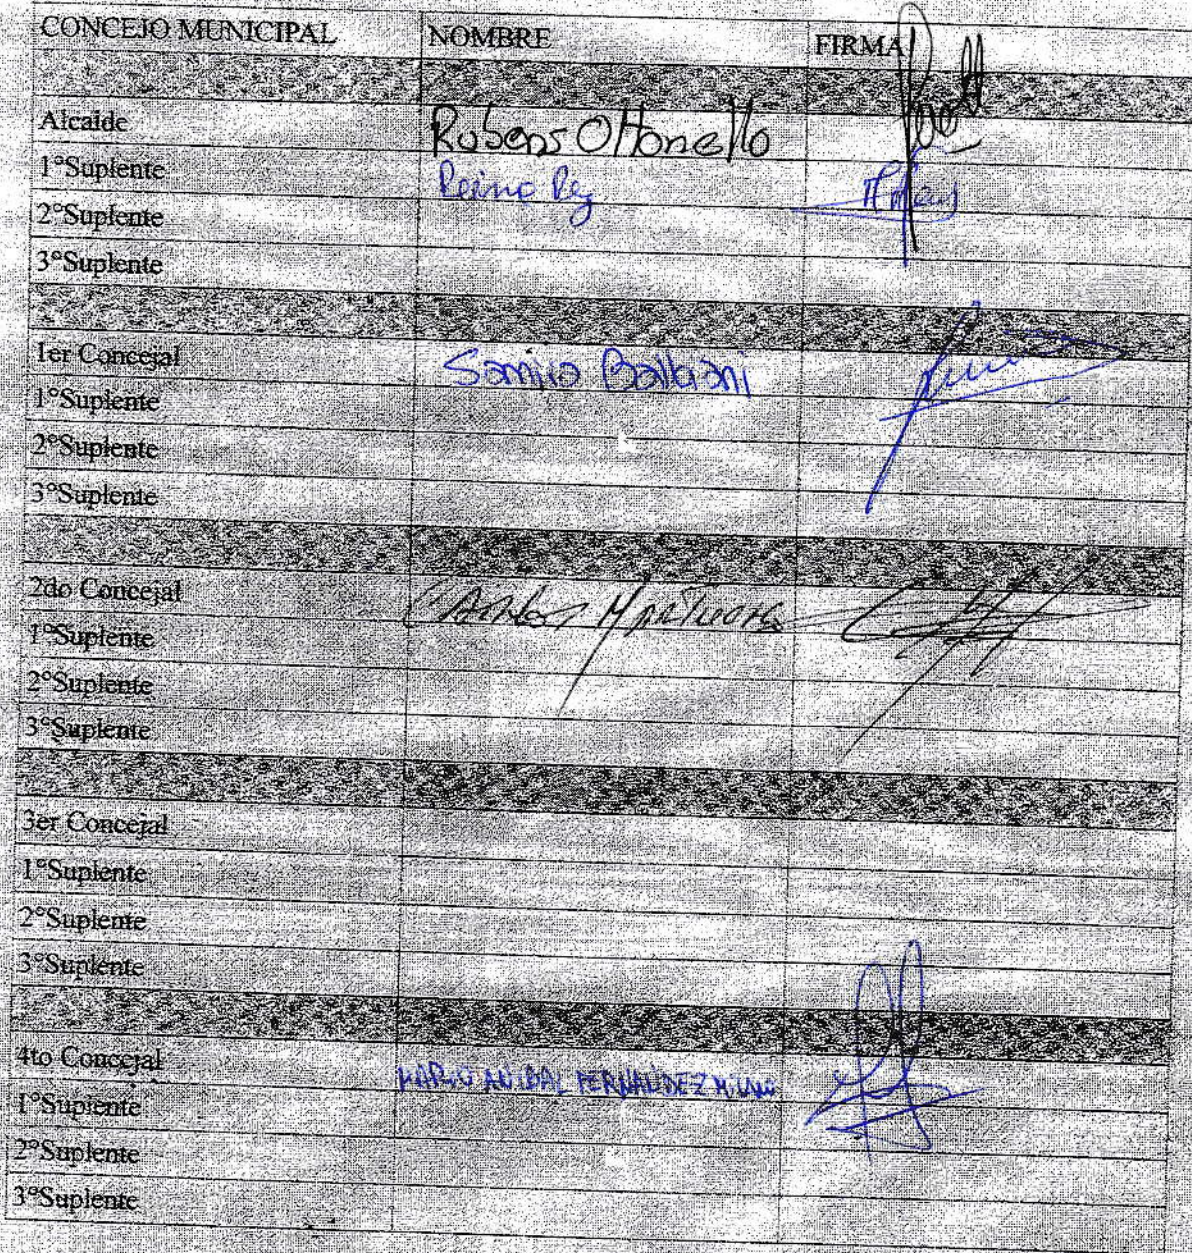 CONCEJO MUNICIPAL NOMBRE FIRMA
Alcalde Rubens Ottonello
1°Suplente
2°Suplente
3°Suplente
1er Concejal Balbiani
1°Suplente
2°Suplente
3°Suplente
2do Concejal Carlos
1°Suplente
2°Suplente
3°Suplente
3er Concejal
1°Suplente
2°Suplente
3°Suplente
4to Concejal MARIO ANIBAL FERNANDEZ
1°Suplente
2°Suplente
3°Suplente